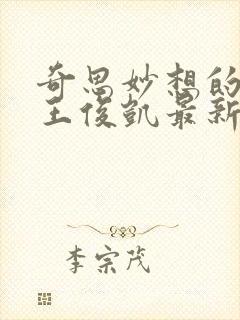 奇思妙想的
王俊凯最新
李宗茂